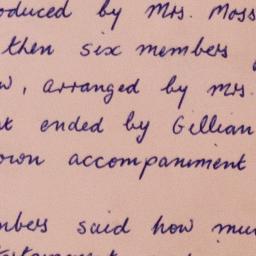 oduced by Mrs. Moss
then six members
w, arranged by Mrs.
t ended by Gillian
own accompaniment
mbers said how mu